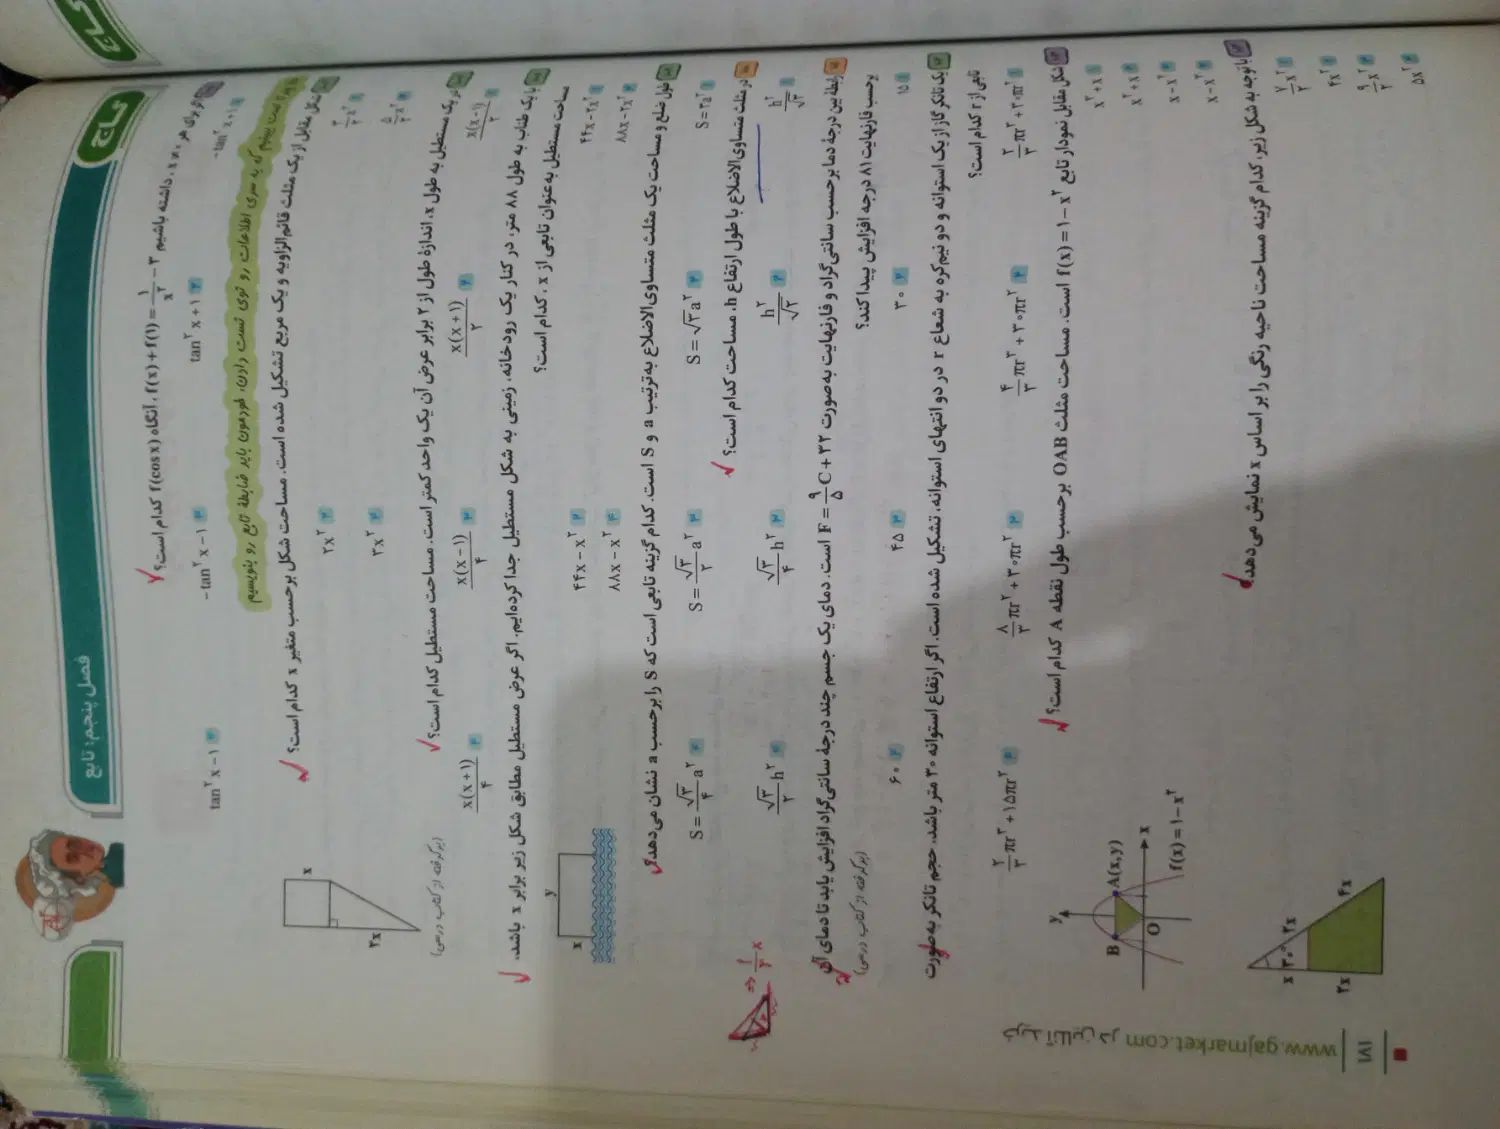 گاج
گاج
فصل پنجم: تابع
اگر برای هر x ≠ ۰، داشته باشیم f(x) + f(۱) = ۱/x² − ۳، آنگاه f(cos x) کدام است؟
۱ −tan² x + ۱
۲ tan² x + ۱
۳ −tan² x − ۱
۴ tan² x − ۱
که یه سری اطلاعات رو توی تست دادن، خودمون باید ضابطهٔ تابع رو بنویسیم
شکل مقابل از یک مثلث قائم‌الزاویه و یک مربع تشکیل شده است. مساحت شکل برحسب متغیر x کدام است؟
۲x²
۳x²
x
۲x
در یک مستطیل به طول x، اندازهٔ طول از ۲ برابر عرض آن یک واحد کمتر است. مساحت مستطیل کدام است؟
(برگرفته از کتاب درسی)
x(x−۱)/۲
x(x+۱)/۲
x(x−۱)/۴
x(x+۱)/۴
با یک طناب به طول ۸۸ متر، در کنار یک رودخانه، زمینی به شکل مستطیل جدا کرده‌ایم. اگر عرض مستطیل مطابق شکل زیر برابر x باشد،
مساحت مستطیل به‌عنوان تابعی از x، کدام است؟
۴۴x − ۲x²
۴۴x − x²
۸۸x − ۲x²
۸۸x − x²
y
x
طول ضلع و مساحت یک مثلث متساوی‌الاضلاع به‌ترتیب a و S است. کدام گزینه تابعی است که S را برحسب a نشان می‌دهد؟
S = ۲a²
S = √۳ a²
S = √۳/۲ a²
S = √۳/۴ a²
در مثلث متساوی‌الاضلاع با طول ارتفاع h، مساحت کدام است؟
h²/√۳
√۳/۴ h²
√۳/۲ h²
رابطهٔ بین درجهٔ دما برحسب سانتی‌گراد و فارنهایت به‌صورت F = ۹/۵ C + ۳۲ است. دمای یک جسم چند درجهٔ سانتی‌گراد افزایش یابد تا دمای آن
برحسب فارنهایت ۸۱ درجه افزایش پیدا کند؟
(برگرفته از کتاب درسی)
۱ ۱۵
۲ ۳۰
۳ ۴۵
۴ ۶۰
یک تانکر گاز از یک استوانه و دو نیم‌کره به شعاع r در دو انتهای استوانه، تشکیل شده است. اگر ارتفاع استوانه ۳۰ متر باشد، حجم تانکر به‌صورت
تابعی از r کدام است؟
۱ ۲/۳ πr³ + ۳۰πr²
۲ ۴/۳ πr³ + ۳۰πr²
۳ ۸/۳ πr³ + ۳۰πr²
۴ ۲/۳ πr³ + ۱۵πr²
شکل مقابل نمودار تابع f(x) = ۱ − x² است. مساحت مثلث OAB برحسب طول نقطه A کدام است؟
x³ + x
x² + x
x − x²
x − x³
y
x
A(x,y)
B
O
f(x) = ۱ − x²
با توجه به شکل زیر، کدام گزینه مساحت ناحیه رنگی را بر اساس x نمایش می‌دهد؟
۷/۲ x²
۴x²
۹/۲ x²
۵x²
x
۳۰°
۲x
۲x
۴x
خرید آنلاین در www.gajmarket.com
۱۷۱